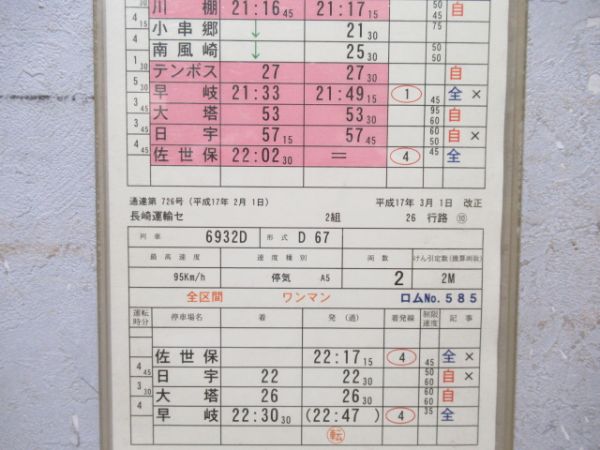 30 川棚 21:16 45 21:17 15 50 45 自
4 15 小串郷 ↓ 21 30 75
4 南風崎 ↓ 25 30 50 50
1 30 テンボス 27 27 30 自
5 30 早岐 21:33 21:49 15 ① 45 全 ×
3 大塔 53 53 30 95 60 自
3 45 日宇 57 15 57 45 60 50 自 ×
4 45 佐世保 22:02 30 = ④ 45 全
通達第 726号 (平成17年 2月 1日) 平成17年 3月 1日 改正
長崎運輸セ 2組 26 行路 ⑩
列車 6932D 形式 D 67
最高速度 速度種別 両数 けん引定数(換算両数)
95Km/h 停気 A5 2 2M
全区間 ワンマン ロムNo. 585
運転時分 停車場名 着 発 (通) 着発線 制限速度 記事
佐世保 22:17 15 ④ 45 全 ×
4 45 日宇 22 22 30 50 60 自 ×
3 30 大塔 26 26 30 60 60 自
4 早岐 22:30 30 (22:47 ) ④ 35 全
転